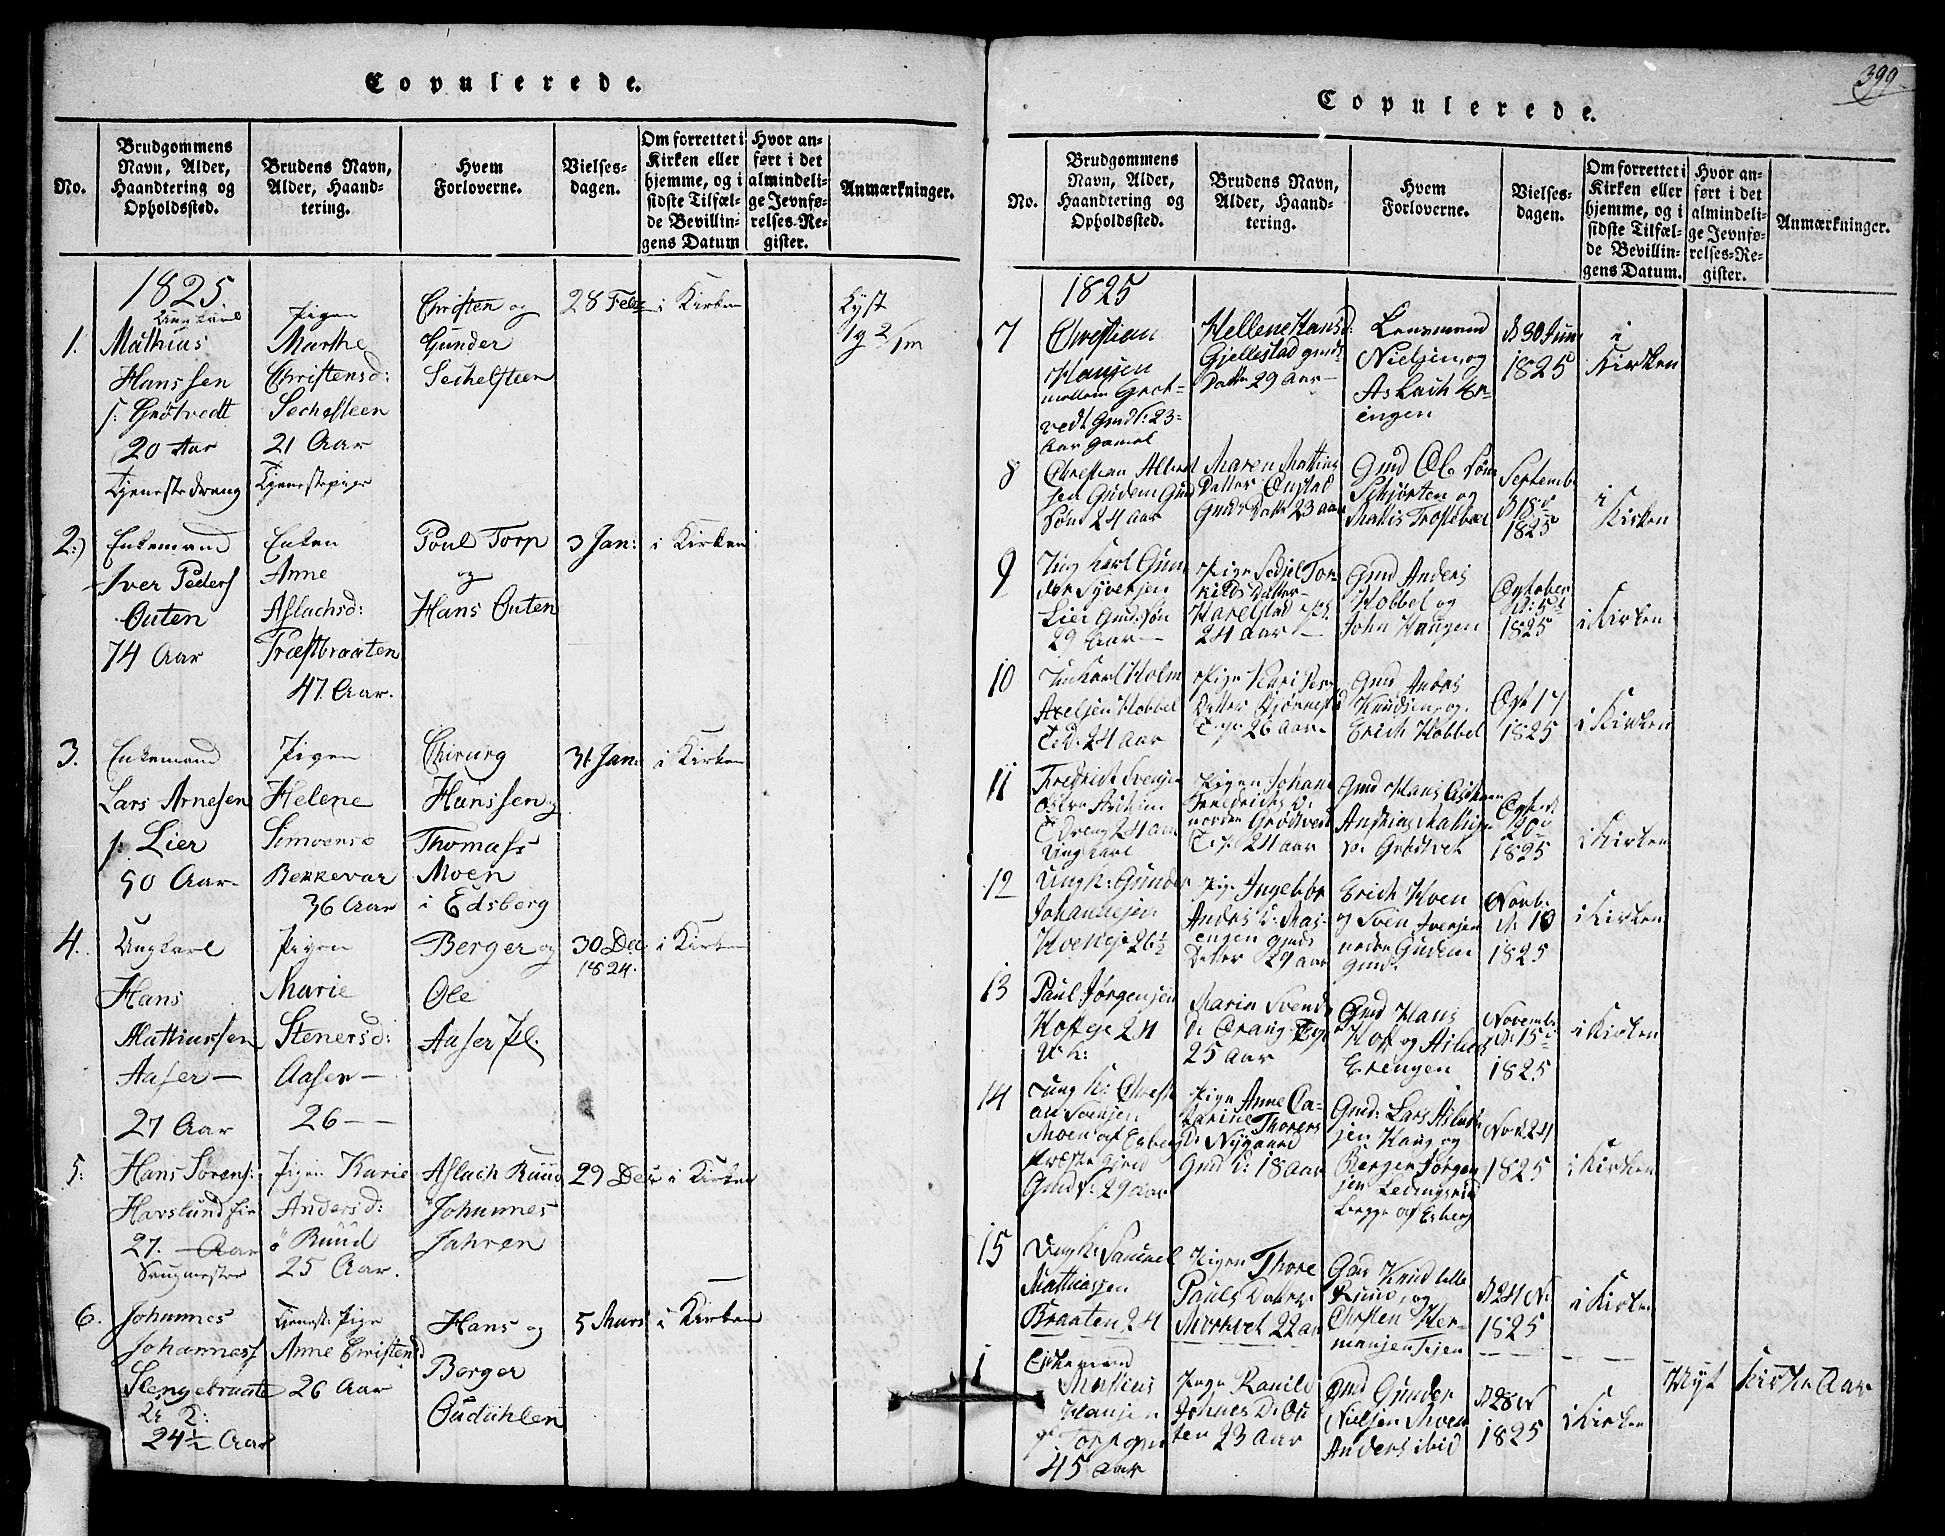 Copulerede.
No.
Brudgommens
Navn, Alder,
Haandtering og
Opholdssted.
Brudens Navn,
Alder, Haand-
tering.
Hvem
Forloverne.
Vielses-
dagen.
Om forrettet i
Kirken eller
hjemme, og i
sidste Tilfæl-
de Bevillin-
gens Datum
Hvor an-
ført i det
almindeli-
ge Jevnfø-
relses-Re-
gister.
Anmærkninger.
1825.
1.
Ungkarl
Mathias
Hanssen
Grötvedt
20 Aar
Tjenestedreng
Pigen
Marthe
Christensd:
Sechelsteen
21 Aar
Tjenestepige
Christen og
Gunder
Sechelsteen
28 Febr
i Kirken
Lyst
2:)
Enkemand
Iver Peders
Outen
74 Aar
Enken
Anne
Aslachsd:
Træstbraaten
47. Aar.
Poul Torp
og
Hans Outen
3 Jan:
i Kirken
3.
Enkemand
Lars Arnesen
Lier
50 Aar
Pigen
Helene
Simensd
Bekkevar
36 Aar
Chirurg
Hanssen og
Thomass
Moen
i Edsberg
31 Jan:
i Kirken
4.
Ungkarl
Hans
Mathiassen
Aaser —
27 Aar
Pigen
Marie
Stenersd:
Aasen —
26 — —
Berger og
Ole
Aaser Pl.
30 Dec
1824.
i Kirken
5:
Hans Sörens:
Havslund
27. Aar
Saugmester
Pigen Karie
Andersd:
Ruud
25 Aar.
Aslach Ruud
Johannes
Jahren
29 Dec
i Kirken
6.
Johannes
Johanness
Slengebraate
24½ Aar
Tjenest: Pige
Anne Christensd
26 Aar
Hans og
Berger
Oudahlen
5 Mars
i Kirken
399
Copulerede.
No.
Brudgommens
Navn, Alder,
Haandtering og
Opholdssted.
Brudens Navn,
Alder, Haand-
tering.
Hvem
Forloverne.
Vielses-
dagen.
Om forrettet i
Kirken eller
hjemme, og i
sidste Tilfæl-
de Bevillin-
gens Datum.
Hvor an-
ført i det
almindeli-
ge Jevnfø-
relses-Re-
gister.
Anmærkninger.
1825
7
Christian
Hansen
mellem Grot-
vedt Gmds: 23
Aar gamel
Hellene Hansd:
Gjellestad gmds
Datter 29 Aar —
Lensmand
Nielsen og
Aslach Er-
ingen
D 30 Juni
1825
i
Kirken
8
Christian Albret
sen Gudem Gmd
Søn 24 Aar
Maren Mattias
Datter Onstad
Gmds Datt 23 aar
Gmd Ole
Skjørten og
Mattis Trostebæl
Septembr
D 18
1825
i
Kirken
9
Ung Karl Gun
der Syversen
Lier Gmd. Søn
29 Aar —
Pige Sedsel Tor-
kilds Datter
Karelstad
24 aar —
Gmd Anders
Kobbel og
John Haugen
October
D: 5
1825
i Kirken
10
Unkarl Holm
Axelsen Kobbel
24 Aar
Pige Kari
Datter
26 aar
Gmd Anders
Knudsen og
Erich Kobbel
Oct 17
1825
i Kirken
11
Fredrich Svensen
24 aar
Ung karl
Pigen Johane
Fredrichs D:
norden Grødtvedt
24 aar
Gmd Hans
Mattisen
Grødtvet
1825
i Kirken
12
Ung K: Gunder
Johannesen
26½
Pige Ingebbr
Anders D:
engen gmds
Datter 29 aar
Erich Hoen
og Sven Iversen
nedre Gudem
gmd
Novb:
D: 10
1825
i Kirken
13
Paul Jørgensen
Hoff 24
U. k:
Maria Svends
D:
25 Aar
Gmd Hans
Hoff og
Erengen
Novemb:
D: 15
1825
i Kirken
14
Ung K: Christi
an Svensen
Moen af Esberg
Gmd: 29 aar
Pige Anne Ca-
tarine Thorers
D: Nygaard
Gmd D: 18 aar
Gmd: Lars
sen Haug og
Berger Jørgen
sen
begge af Esberg
Nov 24
1825
i Kirken
15
Ung K: Samuel
Mathiassen
Braaten 24
Pigen Thore
Pauls Datter
Morkvet 22 aar
Gmd Knud lille
Ruud, og
Christen Her-
mansen
D 24 N
1825
i Kirken
1
Enkemand
Matius
Hansen
Torp
45 aar
Pige Ranild
Johnes D: Ou
ten 23 Aar
Gmd Gunder
Nielsen Moen
Anders ibid
D 28
1825
i Kirken
Nyt
Kirke Aar